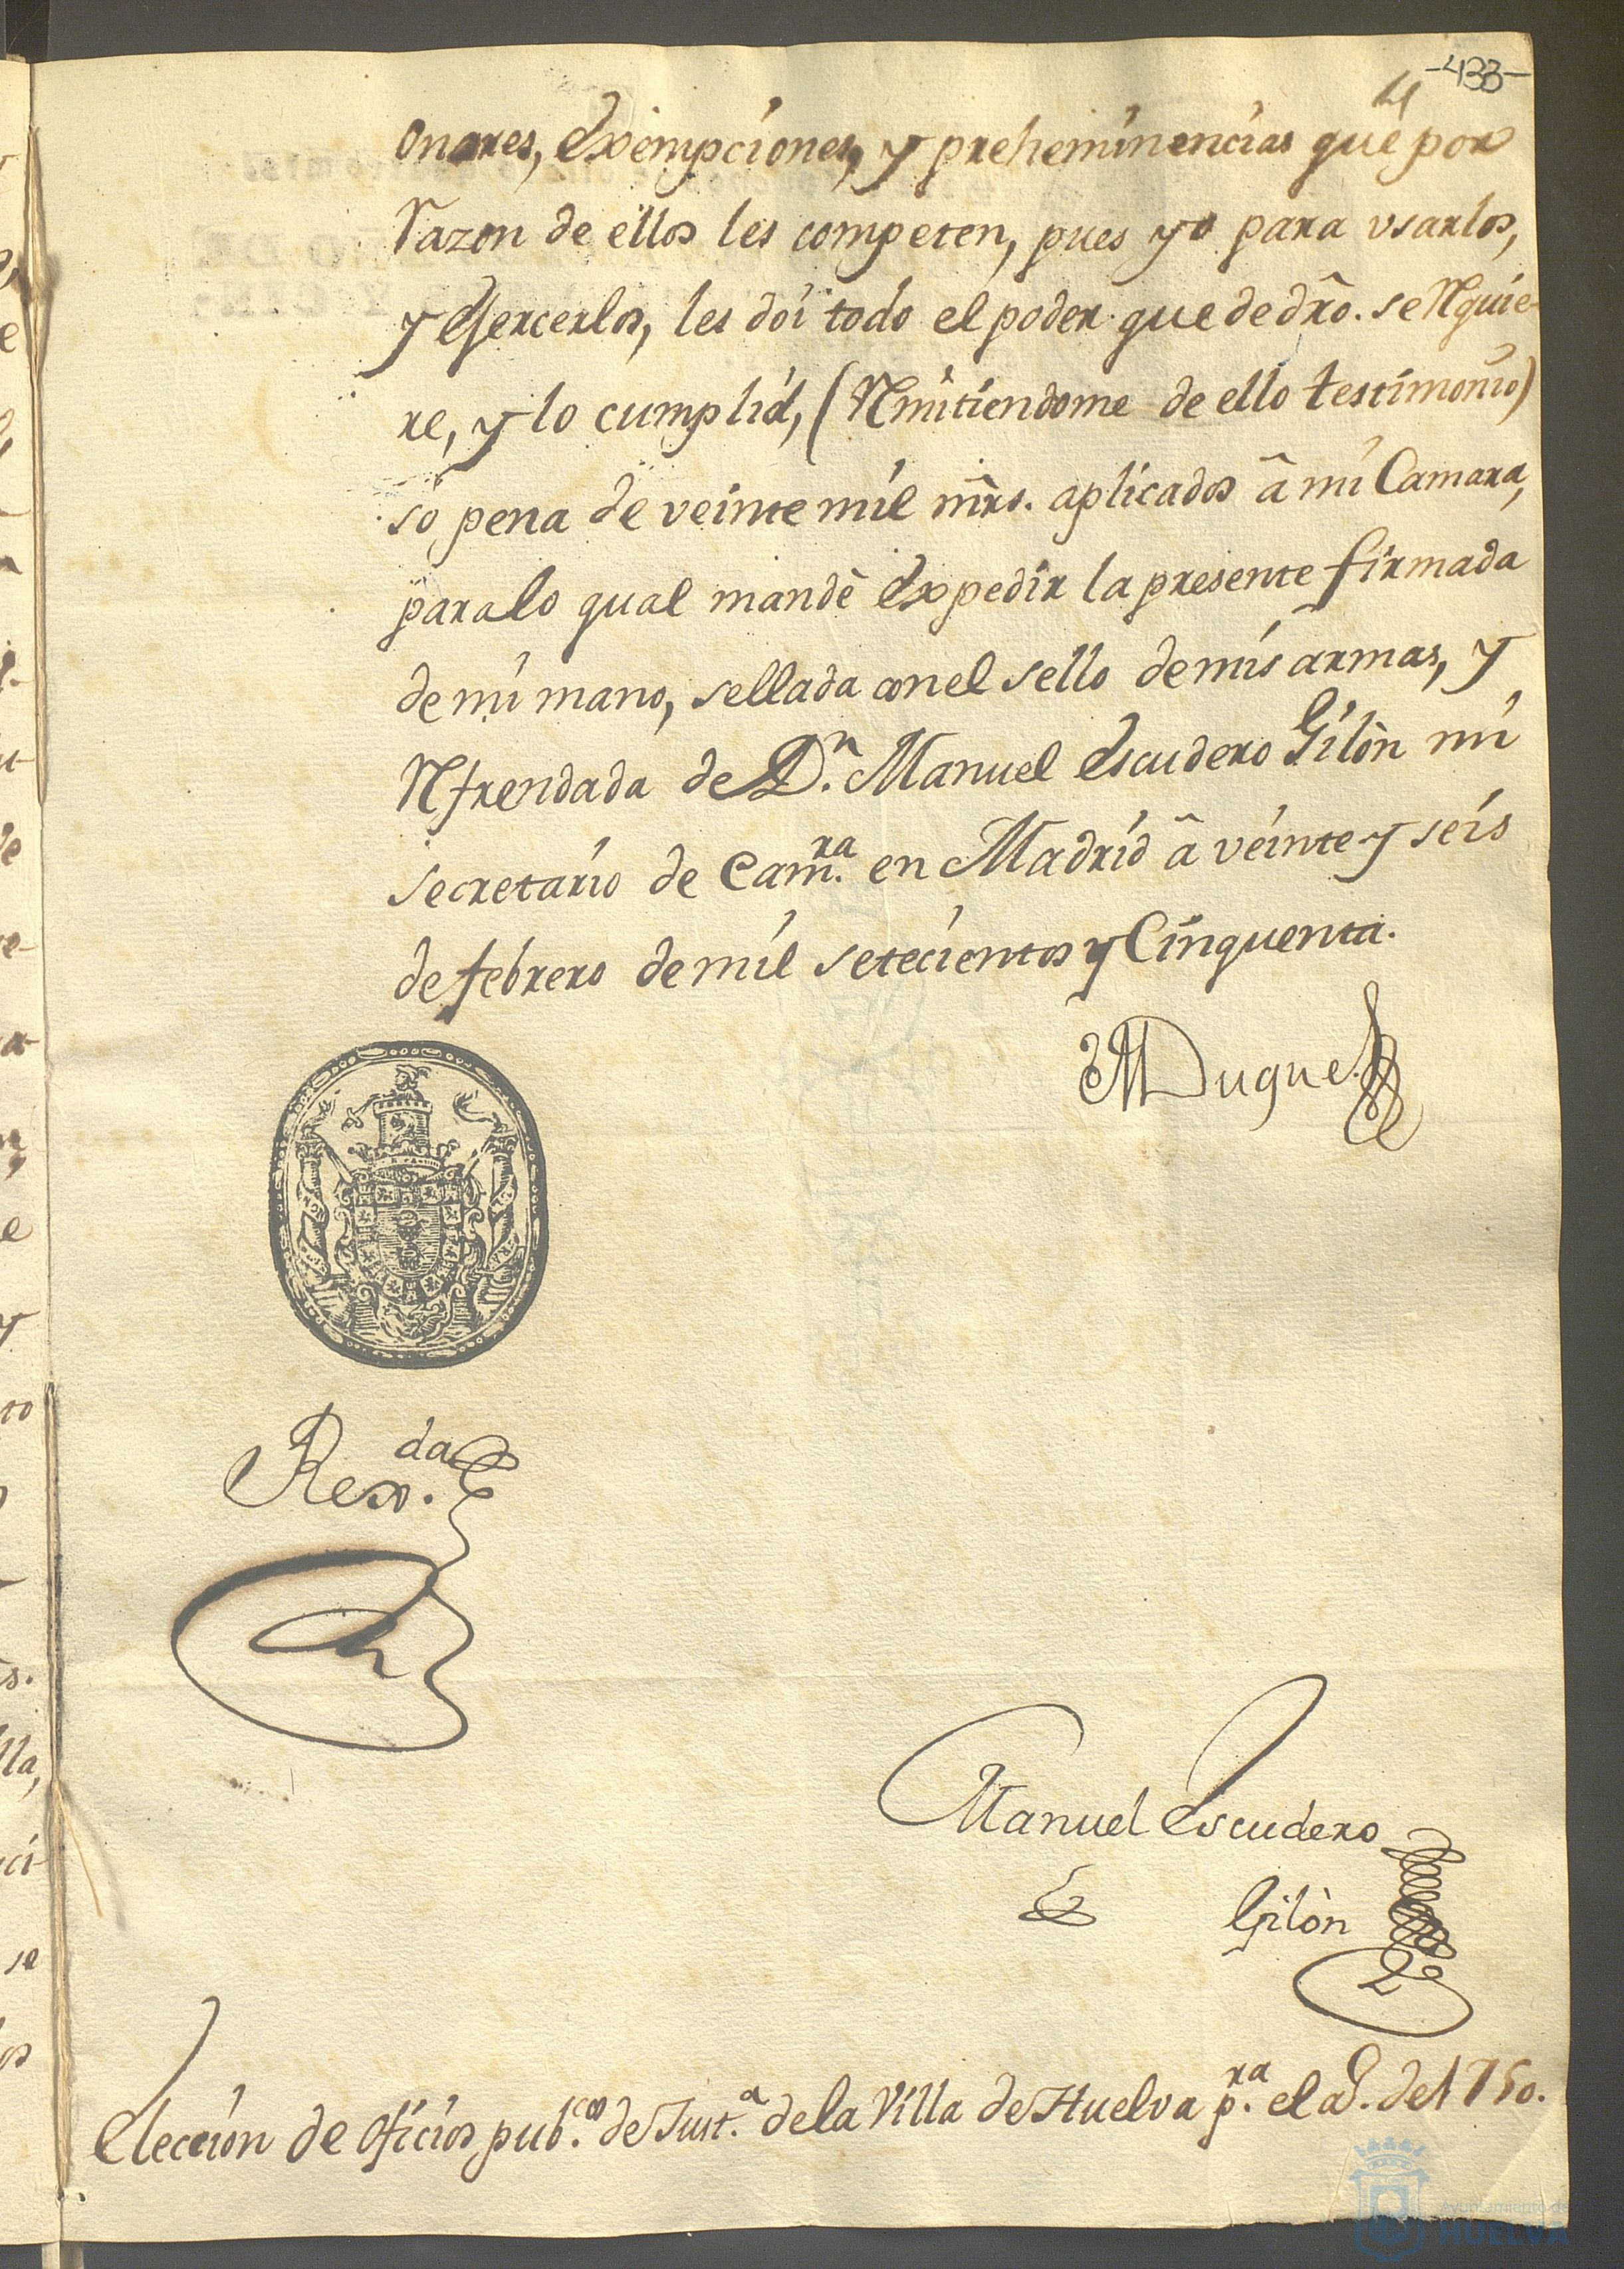 -433-
4
onores, Exempciones, y preheminencias que por
Razon de ellos les competen, pues yo para vsarlos,
y Exercerlos, les doi todo el poder que de dro. se Requie-
re, y lo cumplid, (Remitiendome de ello testimonio)
so pena de veinte mil mrs. aplicados â mi Camara,
para lo qual mandê Expedir la presente firmada
de mi mano, sellada con el sello de mis armas, y
Refrendada de Dn. Manuel Escudero Gilòn mi
secretario de Camra. en Madrid â veinte y seis
de febrero de mil setecientos y Cinquenta.
Duque
Rexda.
Manuel Escudero
Gilòn
Eleccion de oficios pubcos. de Justa. de la Villa de Huelva pra. el aº. de 1750.
Ayuntamiento de
HUELVA